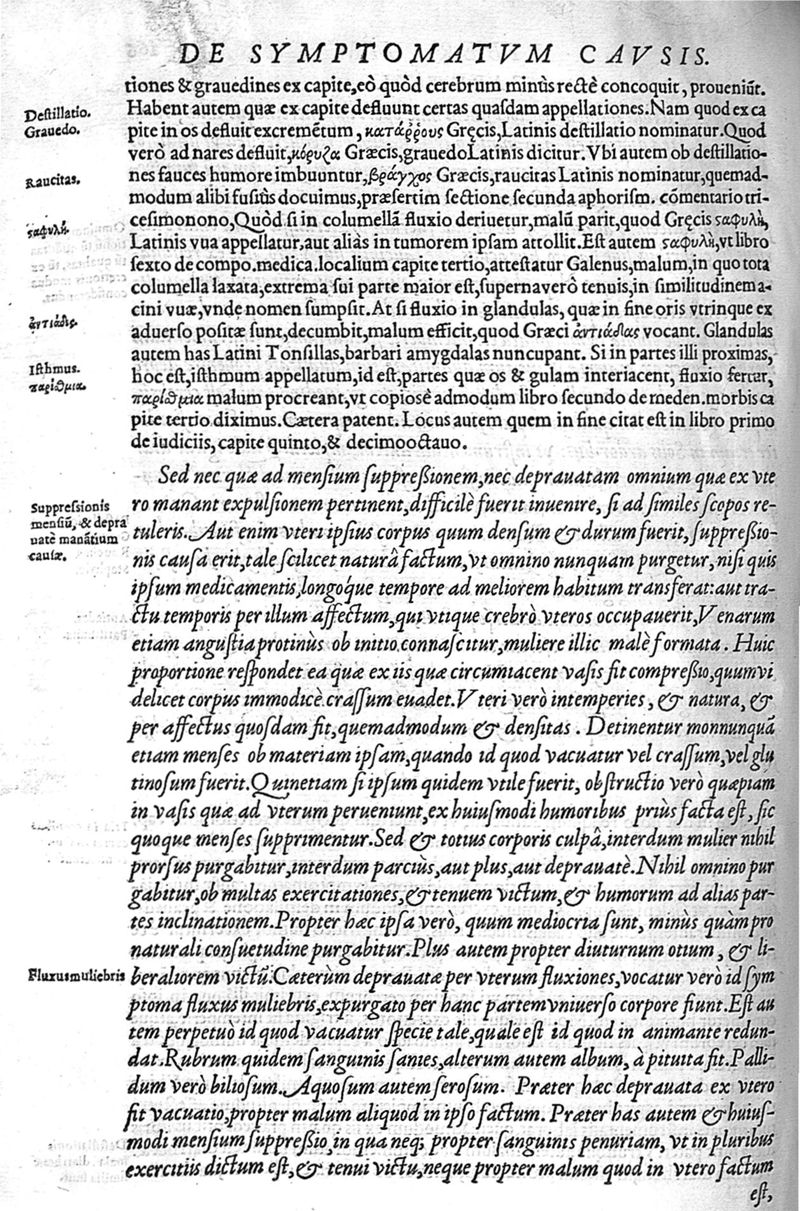 DE SYMPTOMATVM CAVSIS.
tiones & grauedines ex capite, eò quòd cerebrum minùs rectè concoquit, proueniũt.
Destillatio.
Habent autem quæ ex capite defluunt certas quasdam appellationes. Nam quod ex ca
Grauedo.
pite in os defluit excremẽtum, κατάῤῥους Gręcis, Latinis destillatio nominatur. Quod
verò ad nares defluit, κόρυζα Græcis, grauedo Latinis dicitur. Vbi autem ob destillatio-
Raucitas.
nes fauces humore imbuuntur, βράγχος Græcis, raucitas Latinis nominatur, quemad-
modum alibi fusiùs docuimus, præsertim sectione secunda aphorism. cõmentario tri-
ςαφυλή.
cesimonono, Quòd si in columellã fluxio deriuetur, malũ parit, quod Gręcis ςαφυλὴ,
Latinis vua appellatur, aut aliàs in tumorem ipsam attollit. Est autem ςαφυλὴ, vt libro
sexto de compo. medica. localium capite tertio, attestatur Galenus, malum, in quo tota
columella laxata, extrema sui parte maior est, supernaverò tenuis, in similitudinem a-
cini vuæ, vnde nomen sumpsit. At si fluxio in glandulas, quæ in fine oris vtrinque ex
ἀντιάδες.
aduerso positæ sunt, decumbit, malum efficit, quod Græci ἀντιάδας vocant. Glandulas
autem has Latini Tonsillas, barbari amygdalas nuncupant. Si in partes illi proximas,
Isthmus.
hoc est, isthmum appellatum, id est, partes quæ os & gulam interiacent, fluxio fertur,
παρίσθμια.
παρίσθμια malum procreant, vt copiosè admodum libro secundo de meden. morbis ca
pite tertio diximus. Cætera patent. Locus autem quem in fine citat est in libro primo
de iudiciis, capite quinto, & decimooctauo.
Sed nec quæ ad mensium suppreßionem, nec deprauatam omnium quæ ex vte
Suppressionis
mensiũ, & depra
uatè manãtium
causæ.
ro manant expulsionem pertinent, difficilè fuerit inuenire, si ad similes scopos re-
tuleris. Aut enim vteri ipsius corpus quum densum & durum fuerit, suppreßio-
nis causa erit, tale scilicet naturâ factum, vt omnino nunquam purgetur, nisi quis
ipsum medicamentis, longoque tempore ad meliorem habitum transferat: aut tra-
ctu temporis per illum affectum, qui vtique crebrò vteros occupauerit, Venarum
etiam angustia protinùs ob initio connascitur, muliere illic malè formata. Huic
proportione respondet ea quæ ex iis quæ circumiacent vasis fit compreßio, quum vi
delicet corpus immodicè crassum euadet. Vteri verò intemperies, & natura, &
per affectus quosdam fit, quemadmodum & densitas. Detinentur monnunquã
etiam menses ob materiam ipsam, quando id quod vacuatur vel crassum, vel glu
tinosum fuerit. Quinetiam si ipsum quidem vtile fuerit, obstructio verò quæpiam
in vasis quæ ad vterum perueniunt, ex huiusmodi humoribus priùs facta est, sic
quoque menses supprimentur. Sed & totius corporis culpâ, interdum mulier nihil
prorsus purgabitur, interdum parciùs, aut plus, aut deprauatè. Nihil omnino pur
gabitur, ob multas exercitationes, & tenuem victum, & humorum ad alias par-
tes inclinationem. Propter hæc ipsa verò, quum mediocria sunt, minùs quàm pro
naturali consuetudine purgabitur. Plus autem propter diuturnum otium, & li-
Fluxus muliebris
beraliorem victũ. Cæterùm deprauatæ per vterum fluxiones, vocatur verò id sym
ptoma fluxus muliebris, expurgato per hanc partem vniuerso corpore fiunt. Est au
tem perpetuò id quod vacuatur specie tale, quale est id quod in animante redun-
dat. Rubrum quidem sanguinis sanies, alterum autem album, à pituita fit. Palli-
dum verò biliosum. Aquosum autem serosum. Præter hæc deprauata ex vtero
fit vacuatio, propter malum aliquod in ipso factum. Præter has autem & huius-
modi mensium suppreßio, in qua neq; propter sanguinis penuriam, vt in pluribus
exercitiis dictum est, & tenui victu, neque propter malum quod in vtero factum
est,